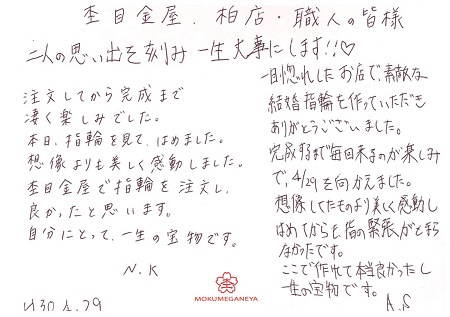 杢目金屋、柏店・職人の皆様
二人の思い出を刻み一生大事にします!!♡
注文してから完成まで
凄く楽しみでした。
本日、指輪を見て、はめました。
想像よりも美しく感動しました。
杢目金屋で指輪を注文し、
良かったと思います。
自分にとって、一生の宝物です。
N.K
H30.4.29
一目惚れしたお店で、素敵な
結婚指輪を作っていただき
ありがとうございました。
完成するまで毎日来るのが楽しみ
で、4/29を向かえました。
想像してたものより美しく感動し
はめてからも指の緊張がとまら
なかったです。
ここで作れて本当良かったし
一生の宝物です。
A.S
MOKUMEGANEYA